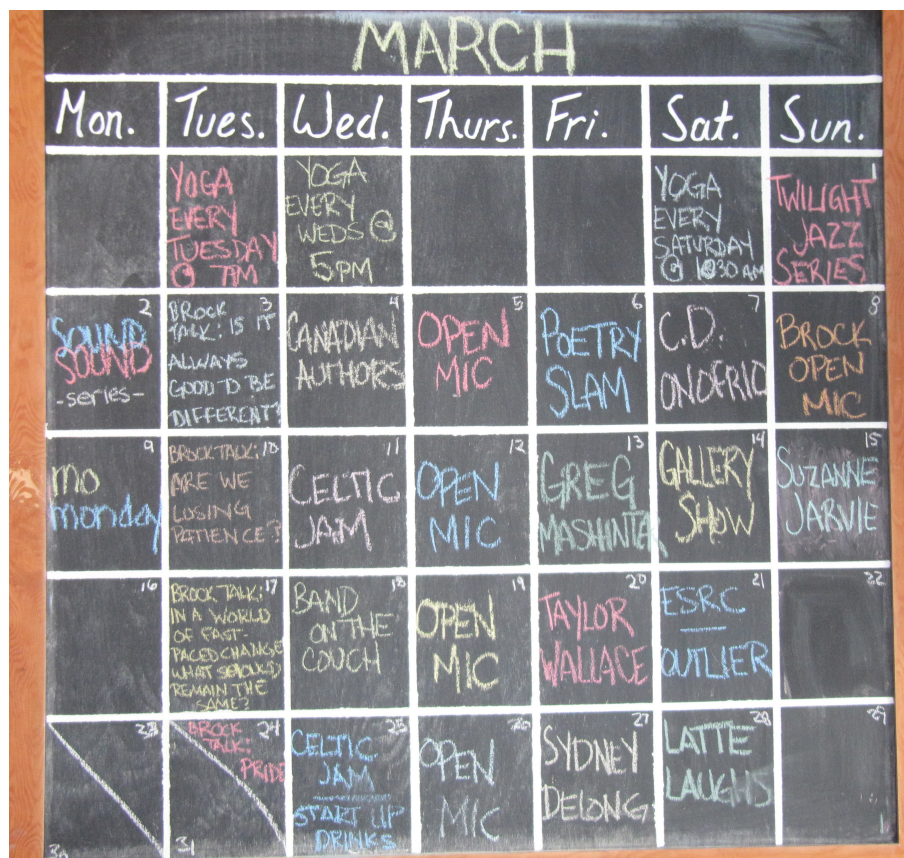 MARCH
Mon. Tues. Wed. Thurs. Fri. Sat. Sun.
YOGA
EVERY
TUESDAY
@ 7PM
YOGA
EVERY
WEDS @
5PM
YOGA
EVERY
SATURDAY
@ 1030 AM
1
TWILIGHT
JAZZ
SERIES
2
SOUND
SOUND
-series-
3
BROCK
TALK: IS IT
ALWAYS
GOOD TO BE
DIFFERENT?
4
CANADIAN
AUTHORS
5
OPEN
MIC
6
POETRY
SLAM
7
C.D.
ONOFRIO
8
BROCK
OPEN
MIC
9
mo
monday
BROCK TALK: 10
ARE WE
LOSING
PATIENCE?
11
CELTIC
JAM
12
OPEN
MIC
13
GREG
MASHINTA
14
GALLERY
SHOW
15
SUZANNE
JARVIE
16
BROCK TALK: 17
IN A WORLD
OF FAST-
PACED CHANGE
WHAT SHOULD
REMAIN THE
SAME?
18
BAND
ON THE
COUCH
19
OPEN
MIC
20
TAYLOR
WALLACE
21
ESRC
OUTLIER
22
23
30
24
BROCK
TALK:
PRIDE
31
25
CELTIC
JAM
START UP
DRINKS
26
OPEN
MIC
27
SYDNEY
DELONG
28
LATTE
LAUGHS
29